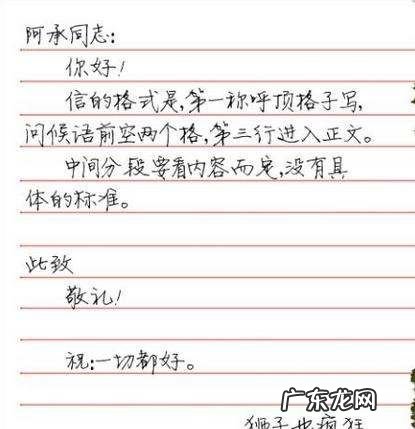 阿承同志:
你好!
信的格式是,第一称呼顶格子写,
问候语前空两个格,第三行进入正文。
中间分段要看内容而定,没有具
体的标准。
此致
敬礼!
祝:一切都好。
狮子也疯狂
广东龙网